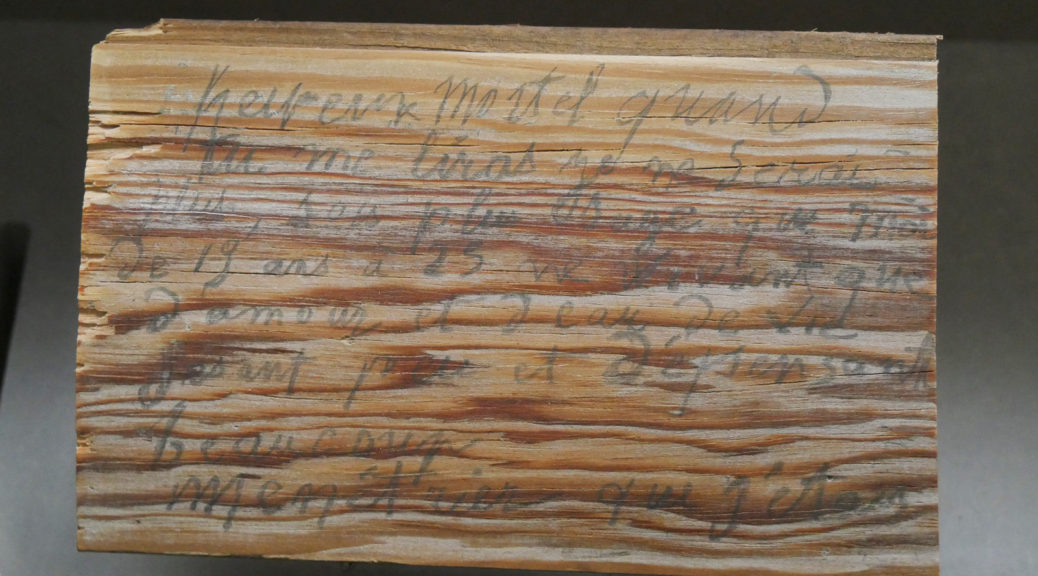 heureux mortel quand
tu me liras je ne serais
plus, sois plus sage que moi
de 19 ans à 25 ne vivant que
d'amour et d'eau de vie
fesant peu et dépensant
beaucoup
menétrier que j'étais